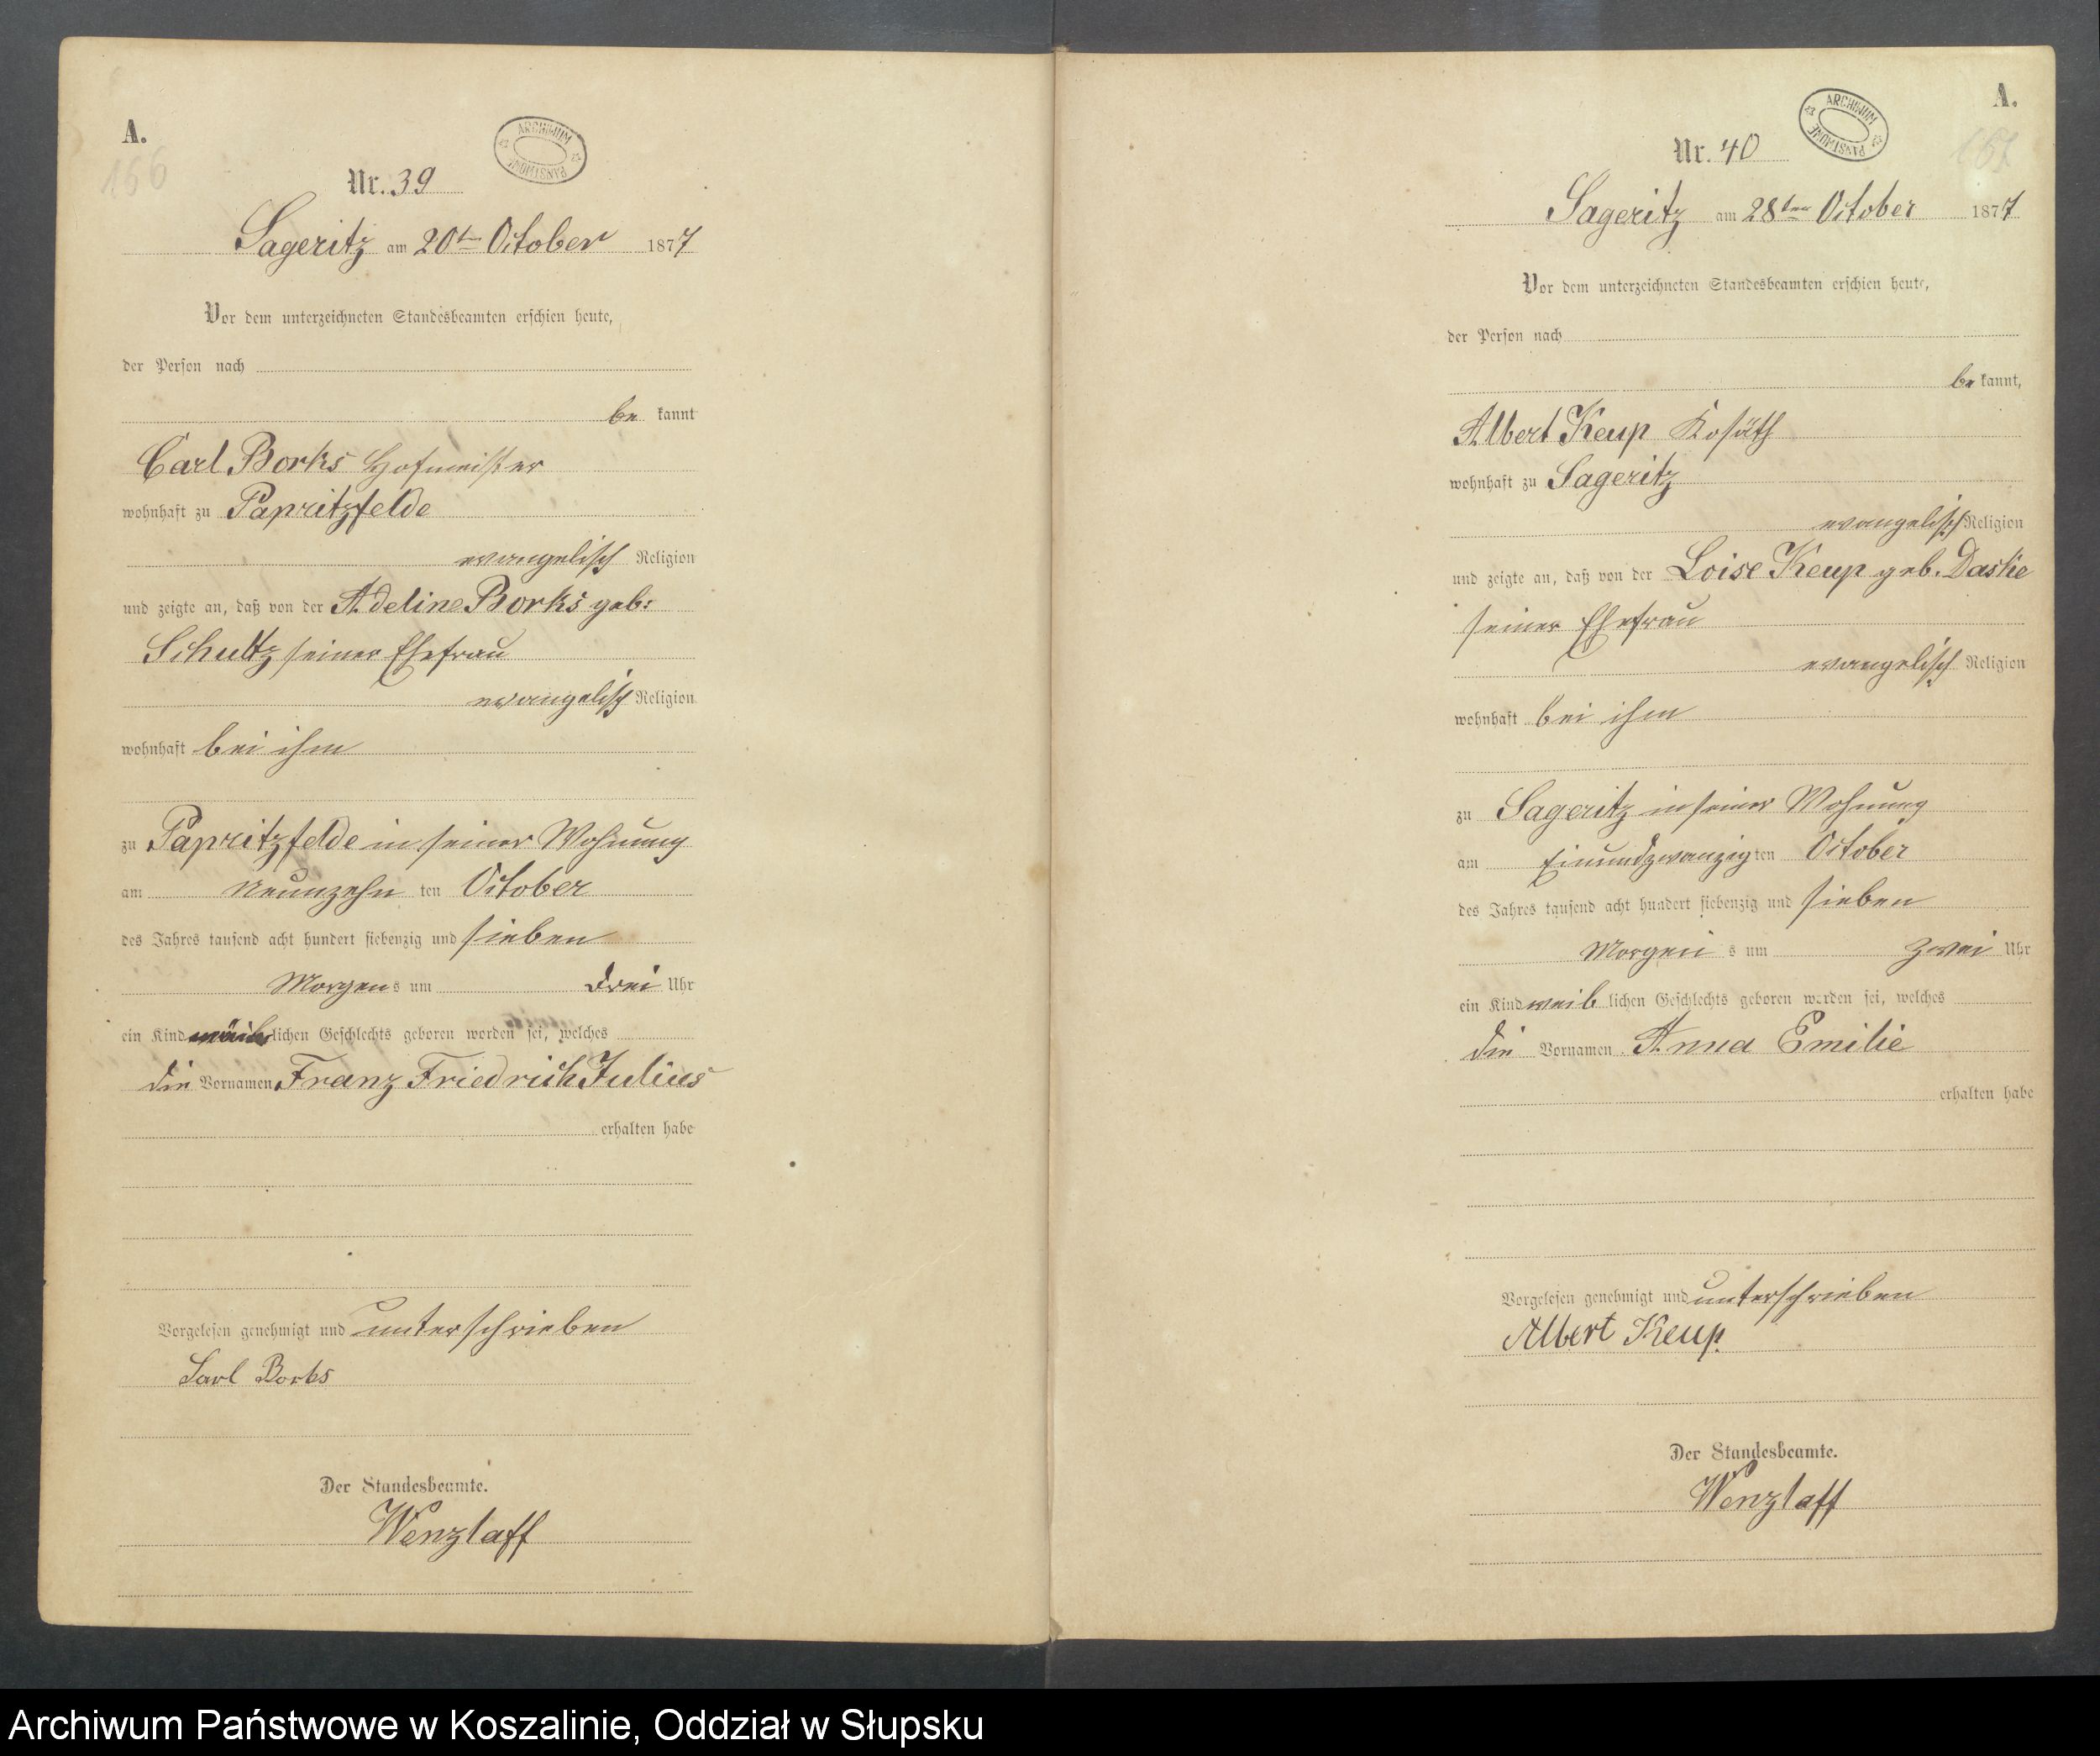 A.
166
ARCHIWUM PAŃSTWOWE
Nr. 39
Sageritz am 20ten October 1877
Vor dem unterzeichneten Standesbeamten erschien heute,
der Person nach
be kannt
Carl Borks Hofmeister
wohnhaft zu Papritzfelde
evangelisch Religion
und zeigte an, daß von der Adeline Borks geb:
Schultz seiner Ehefrau
evangelisch Religion
wohnhaft bei ihm
zu Papritzfelde in seiner Wohnung
am neunzehn ten October
des Jahres tausend acht hundert siebenzig und sieben
Morgens um drei Uhr
ein Kind lichen Geschlechts geboren worden sei, welches
die Vornamen Franz Friedrich Julius
erhalten habe
Vorgelesen genehmigt und unterschrieben
Carl Borks
Der Standesbeamte.
Wenzlaff
A.
167
ARCHIWUM PAŃSTWOWE
Nr. 40
Sageritz am 28ten October 1877
Vor dem unterzeichneten Standesbeamten erschien heute,
der Person nach
be kannt,
Albert Keup Kosäth
wohnhaft zu Sageritz
evangelisch Religion
und zeigte an, daß von der Loise Keup geb. Daske
seiner Ehefrau
evangelisch Religion
wohnhaft bei ihm
zu Sageritz in seiner Wohnung
am Einundzwanzig ten October
des Jahres tausend acht hundert siebenzig und sieben
Morgen s um zwei Uhr
ein Kind weib lichen Geschlechts geboren worden sei, welches
die Vornamen Anna Emilie
erhalten habe
Vorgelesen genehmigt und unterschrieben
Albert Keup.
Der Standesbeamte.
Wenzlaff
Archiwum Państwowe w Koszalinie, Oddział w Słupsku